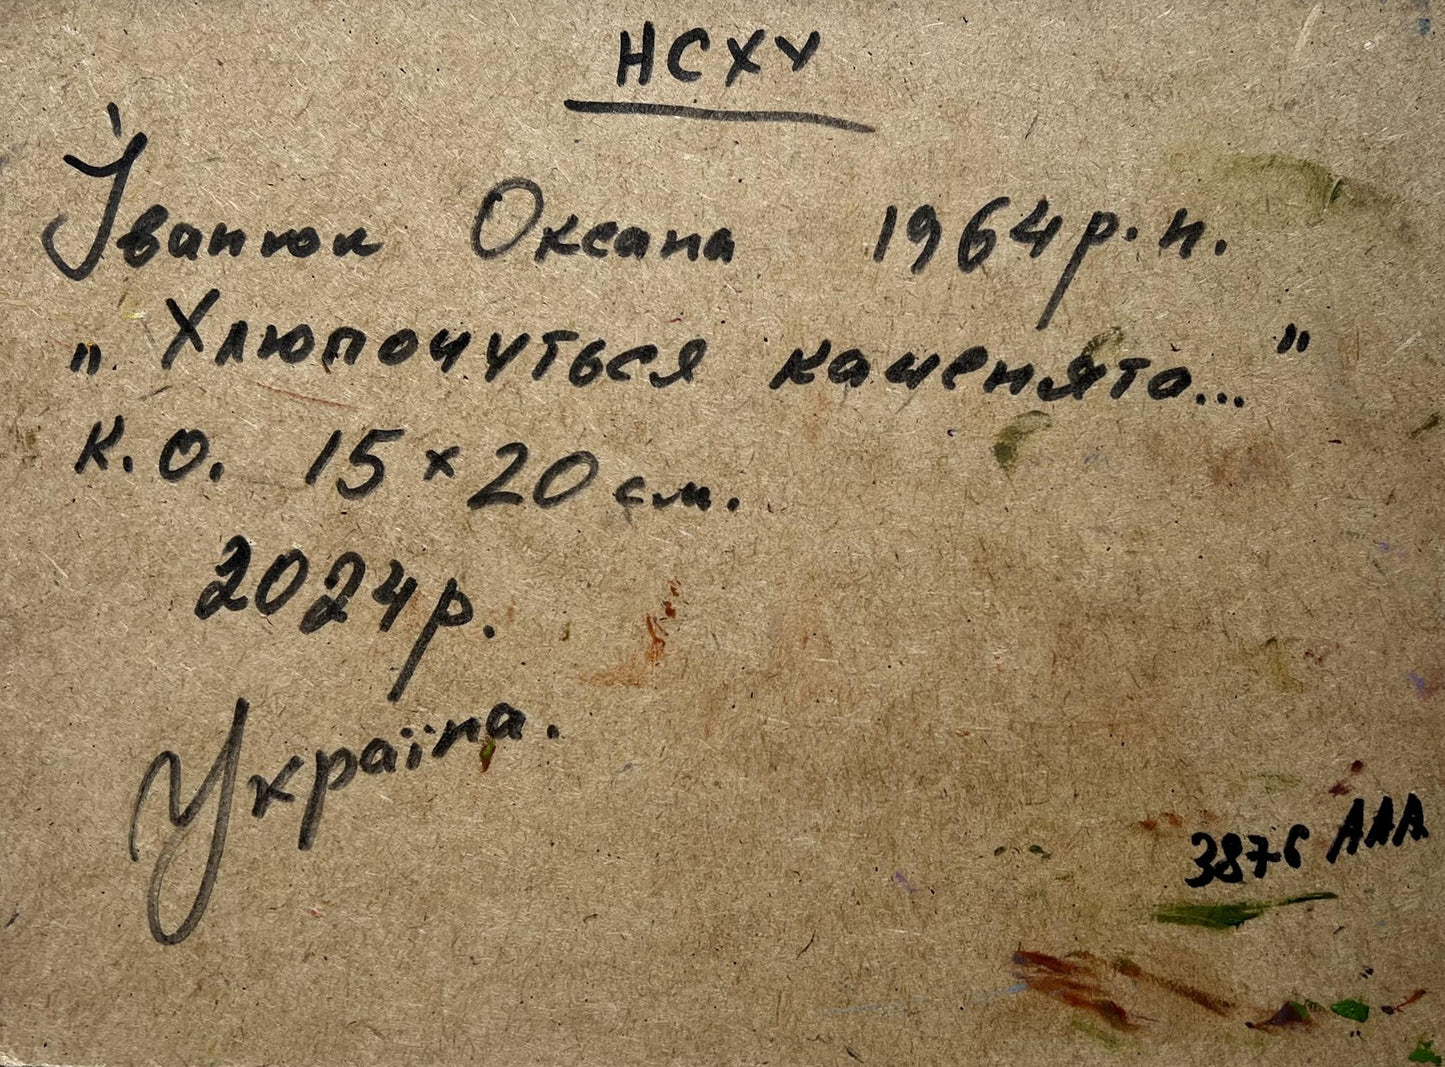 НСХУ
Іванюк Оксана 1964р.н.
„Хлюпочуться каменята..."
к.о. 15×20 см.
2024р.
Україна.
3876 ААА